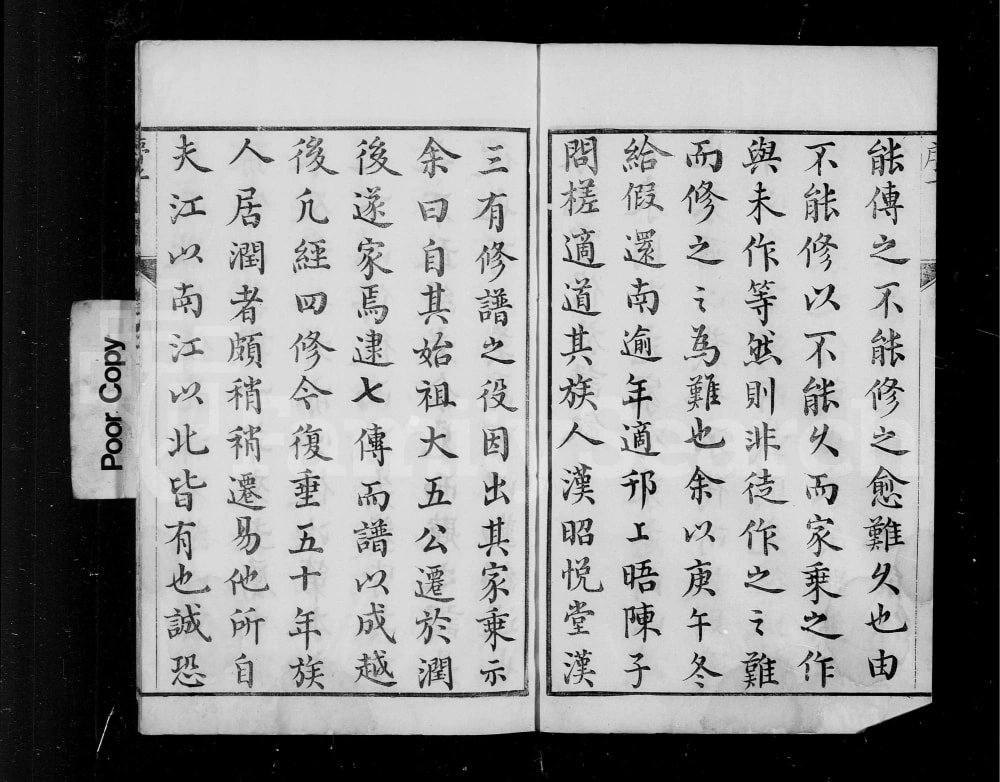 序
能傳之不能修之愈難久也由
不能修以不能久而家乗之作
與未作等然則非徒作之之難
而修之之為難也余以庚午冬
給假還南逾年適邗上晤陳子
問槎適道其族人漢昭悦堂漢
三有修譜之役因出其家乗示
余曰自其始祖大五公遷於潤
後遂家焉逮七傳而譜以成越
後凢經四修今復垂五十年族
人居潤者頗稍稍遷易他所自
夫江以南江以北皆有也誠恐
Poor Copy
FamilySearch